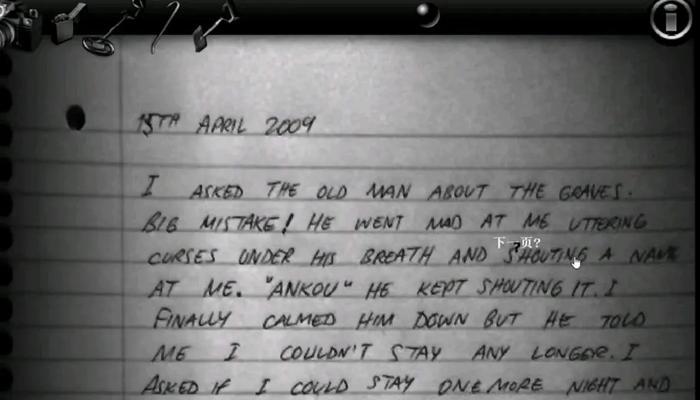 15TH APRIL 2009
I ASKED THE OLD MAN ABOUT THE GRAVES.
BIG MISTAKE! HE WENT MAD AT ME UTTERING
下一页?
CURSES UNDER HIS BREATH AND SHOUTING A NAME
AT ME. "ANKOU" HE KEPT SHOUTING IT. I
FINALLY CALMED HIM DOWN BUT HE TOLD
ME I COULDN'T STAY ANY LONGER. I
ASKED IF I COULD STAY ONE MORE NIGHT AND